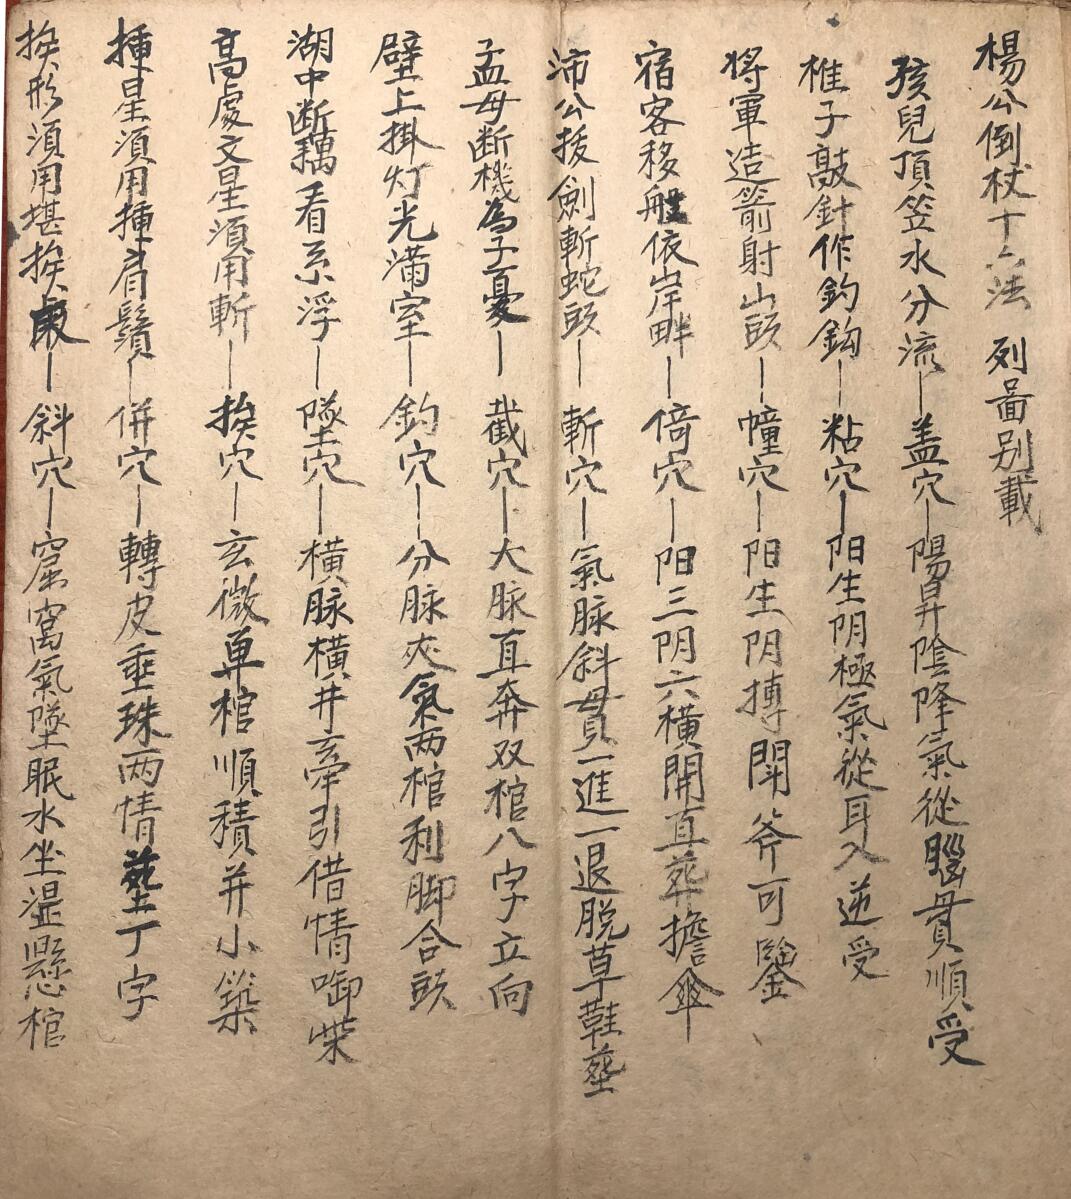 楊公倒杖十六法 列畵別載
孩兒頂笠水分流—盖穴—陽昇陰降氣從腦貫順受
椎子敲針作釣鈎—粘穴—阳生阴極氣從耳入逆受
將軍造箭射山頭—幢穴—阳生阴摶開斧可鑿
宿客移船依岸畔—倚穴—阳三阴六橫開直葬擔傘
沛公拔劍斬蛇頭—斬穴—氣脉斜貫一進一退脱草鞋塟
孟母断機為子憂—截穴—大脉直奔双棺八字立向
壁上掛灯光滿室—釣穴—分脉夾氣两棺利脚合頭
湖中断藕看糸浮—隊穴—橫脉橫井牽引借情啣柴
高處文星須用斬—挨穴—玄微單棺順積并小築
揷星須用揷肩鬚—併穴—轉皮垂珠两情塟丁字
挨形須用堪挨—斜穴—窟窩氣墜眠水坐湿懸棺